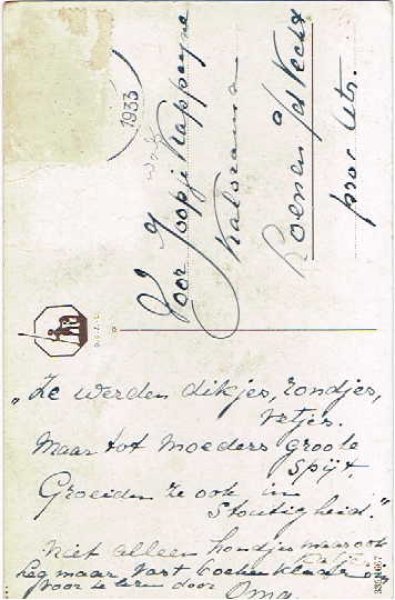 1933
Voor Joopje Kappeyne
Kalorama
Loenen a/d Vecht
prov Utr.
„Ze werden dikjes, rondjes,
vetjes.
Maar tot Moeders groote
spijt.
Groeiden ze ook in
Stoutigheid."
Niet alleen hondjes maar ook
Leg maar vast
voor te lezen door Oma